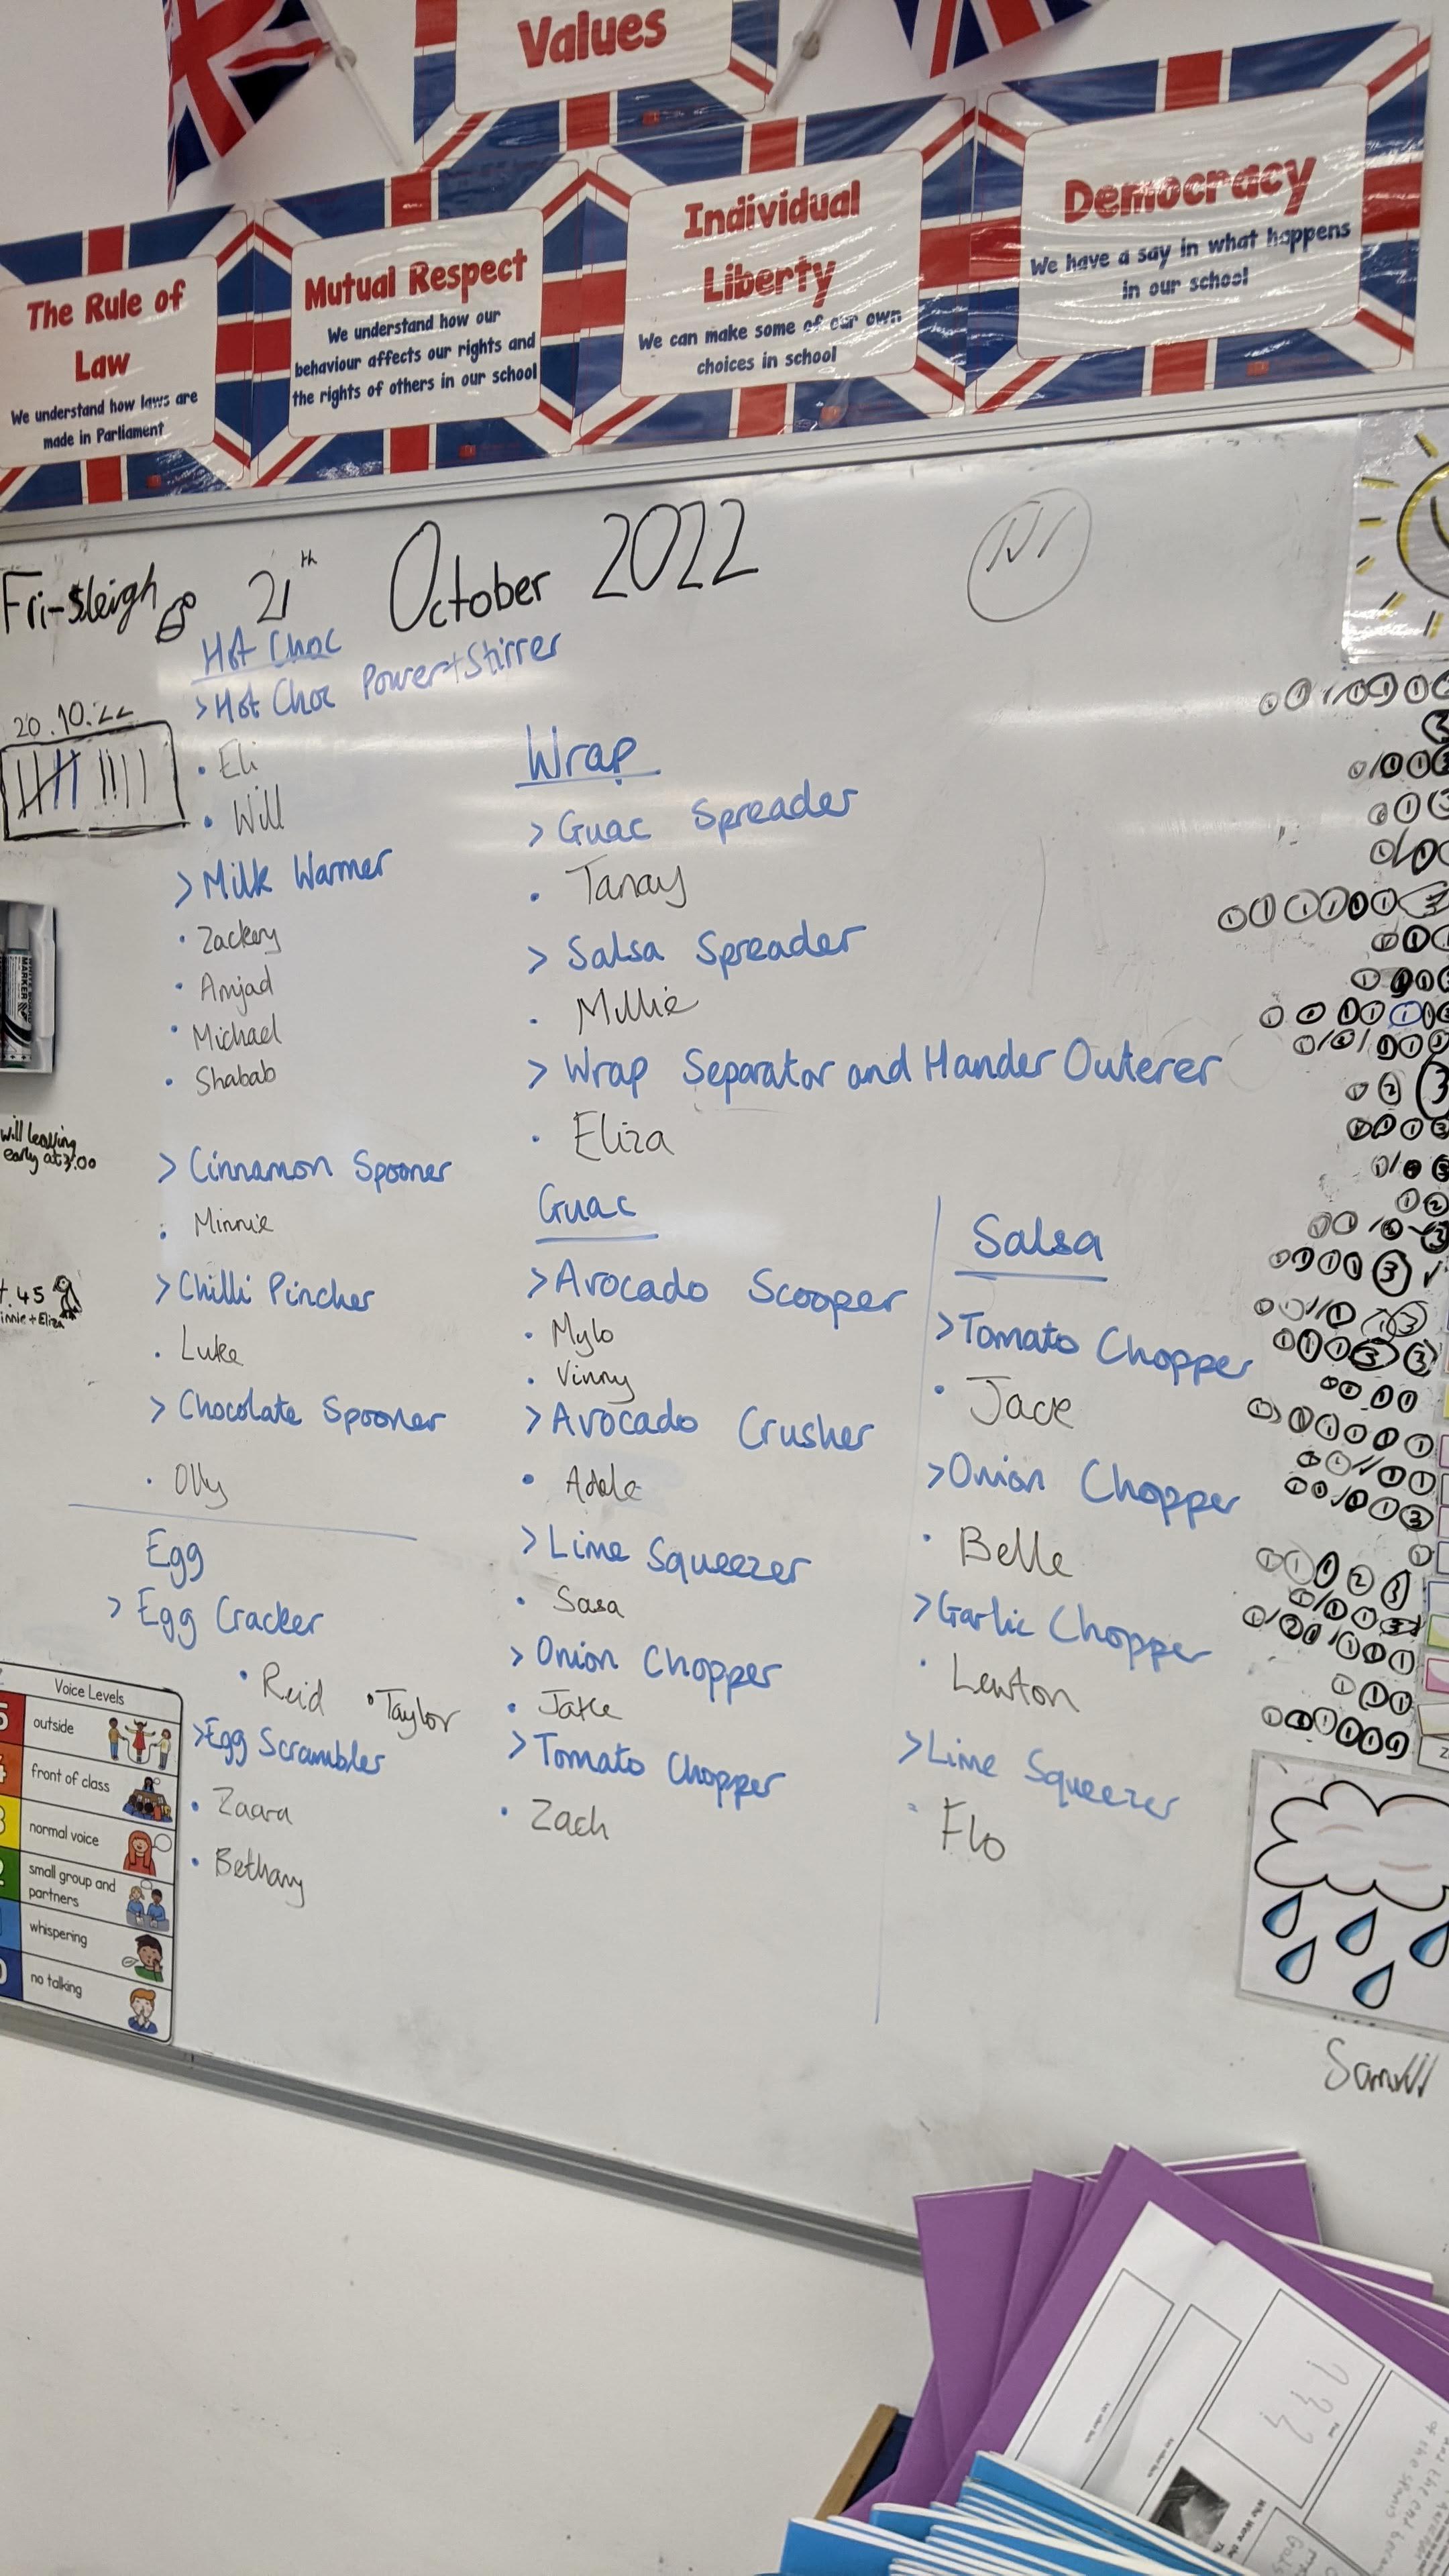 Values
The Rule of
Law
We understand how laws are
made in Parliament
Mutual Respect
We understand how our
behaviour affects our rights and
the rights of others in our school
Individual
Liberty
We can make some of our own
choices in school
Democracy
We have a say in what happens
in our school
Fri-sleigh 21th October 2022
20.10.22
Hot Choc
>Hot Choc Power+Stirrer
• Eli
• Will
> Milk Warmer
• Zackery
• Amjad
• Michael
• Shabab
> Cinnamon Spooner
• Minnie
> Chilli Pincher
• Luke
> Chocolate Spooner
• Olly
Egg
> Egg Cracker
• Reid • Taylor
>Egg Scrambler
• Zaara
• Bethany
Wrap
> Guac Spreader
• Tanay
> Salsa Spreader
• Millie
> Wrap Separator and Hander Outerer
• Eliza
Guac
>Avocado Scooper
• Mylo
• Vinny
>Avocado Crusher
• Adele
>Lime Squeezer
• Sasa
> Onion Chopper
• Jake
>Tomato Chopper
• Zach
Salsa
>Tomato Chopper
• Jack
>Onion Chopper
• Belle
>Garlic Chopper
• Lewton
>Lime Squeezer
• Flo
will leaving
early at 3:00
.45
innie + Eliza
MARKER
Voice Levels
outside
front of class
normal voice
small group and
partners
whispering
no talking